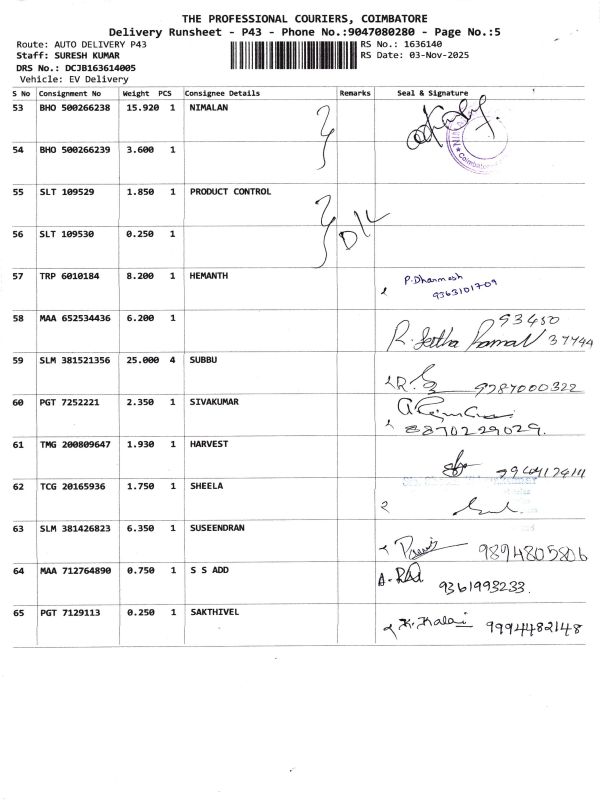 THE PROFESSIONAL COURIERS, COIMBATORE
Delivery Runsheet - P43 - Phone No.:9047080280 - Page No.:5
Route: AUTO DELIVERY P43
Staff: SURESH KUMAR
DRS No.: DCJB163614005
Vehicle: EV Delivery
RS No.: 1636140
RS Date: 03-Nov-2025
S No Consignment No Weight PCS Consignee Details Remarks Seal & Signature
53 BHO 500266238 15.920 1 NIMALAN
54 BHO 500266239 3.600 1
55 SLT 109529 1.850 1 PRODUCT CONTROL
D/L
56 SLT 109530 0.250 1
57 TRP 6010184 8.200 1 HEMANTH P. Dharmesh
9363101709
58 MAA 652534436 6.200 1 93450
37744
59 SLM 381521356 25.000 4 SUBBU 9787000322
60 PGT 7252221 2.350 1 SIVAKUMAR
8870229029.
61 TMG 200809647 1.930 1 HARVEST
62 TCG 20165936 1.750 1 SHEELA
63 SLM 381426823 6.350 1 SUSEENDRAN 9894805806
64 MAA 712764890 0.750 1 S S ADD
9361993233.
65 PGT 7129113 0.250 1 SAKTHIVEL K. Kalai 9994482148